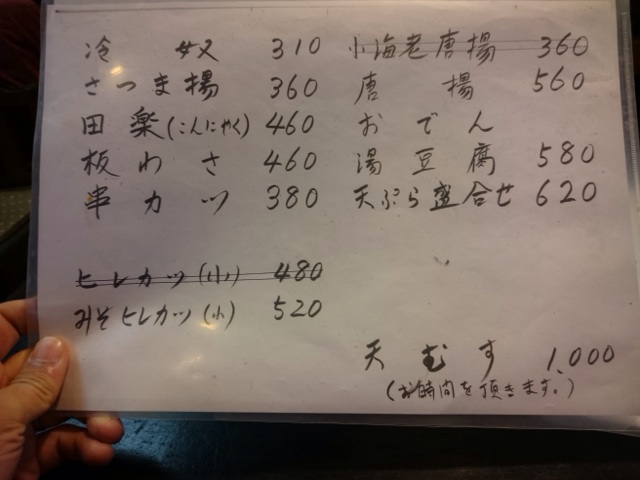 冷奴 310
さつま揚 360
田楽(こんにゃく) 460
板わさ 460
串カツ 380
ヒレカツ(小) 480
みそヒレカツ(小) 520
小海老唐揚 360
唐揚 560
おでん
湯豆腐 580
天ぷら盛合せ 620
天むす 1,000
(お時間を頂きます。)